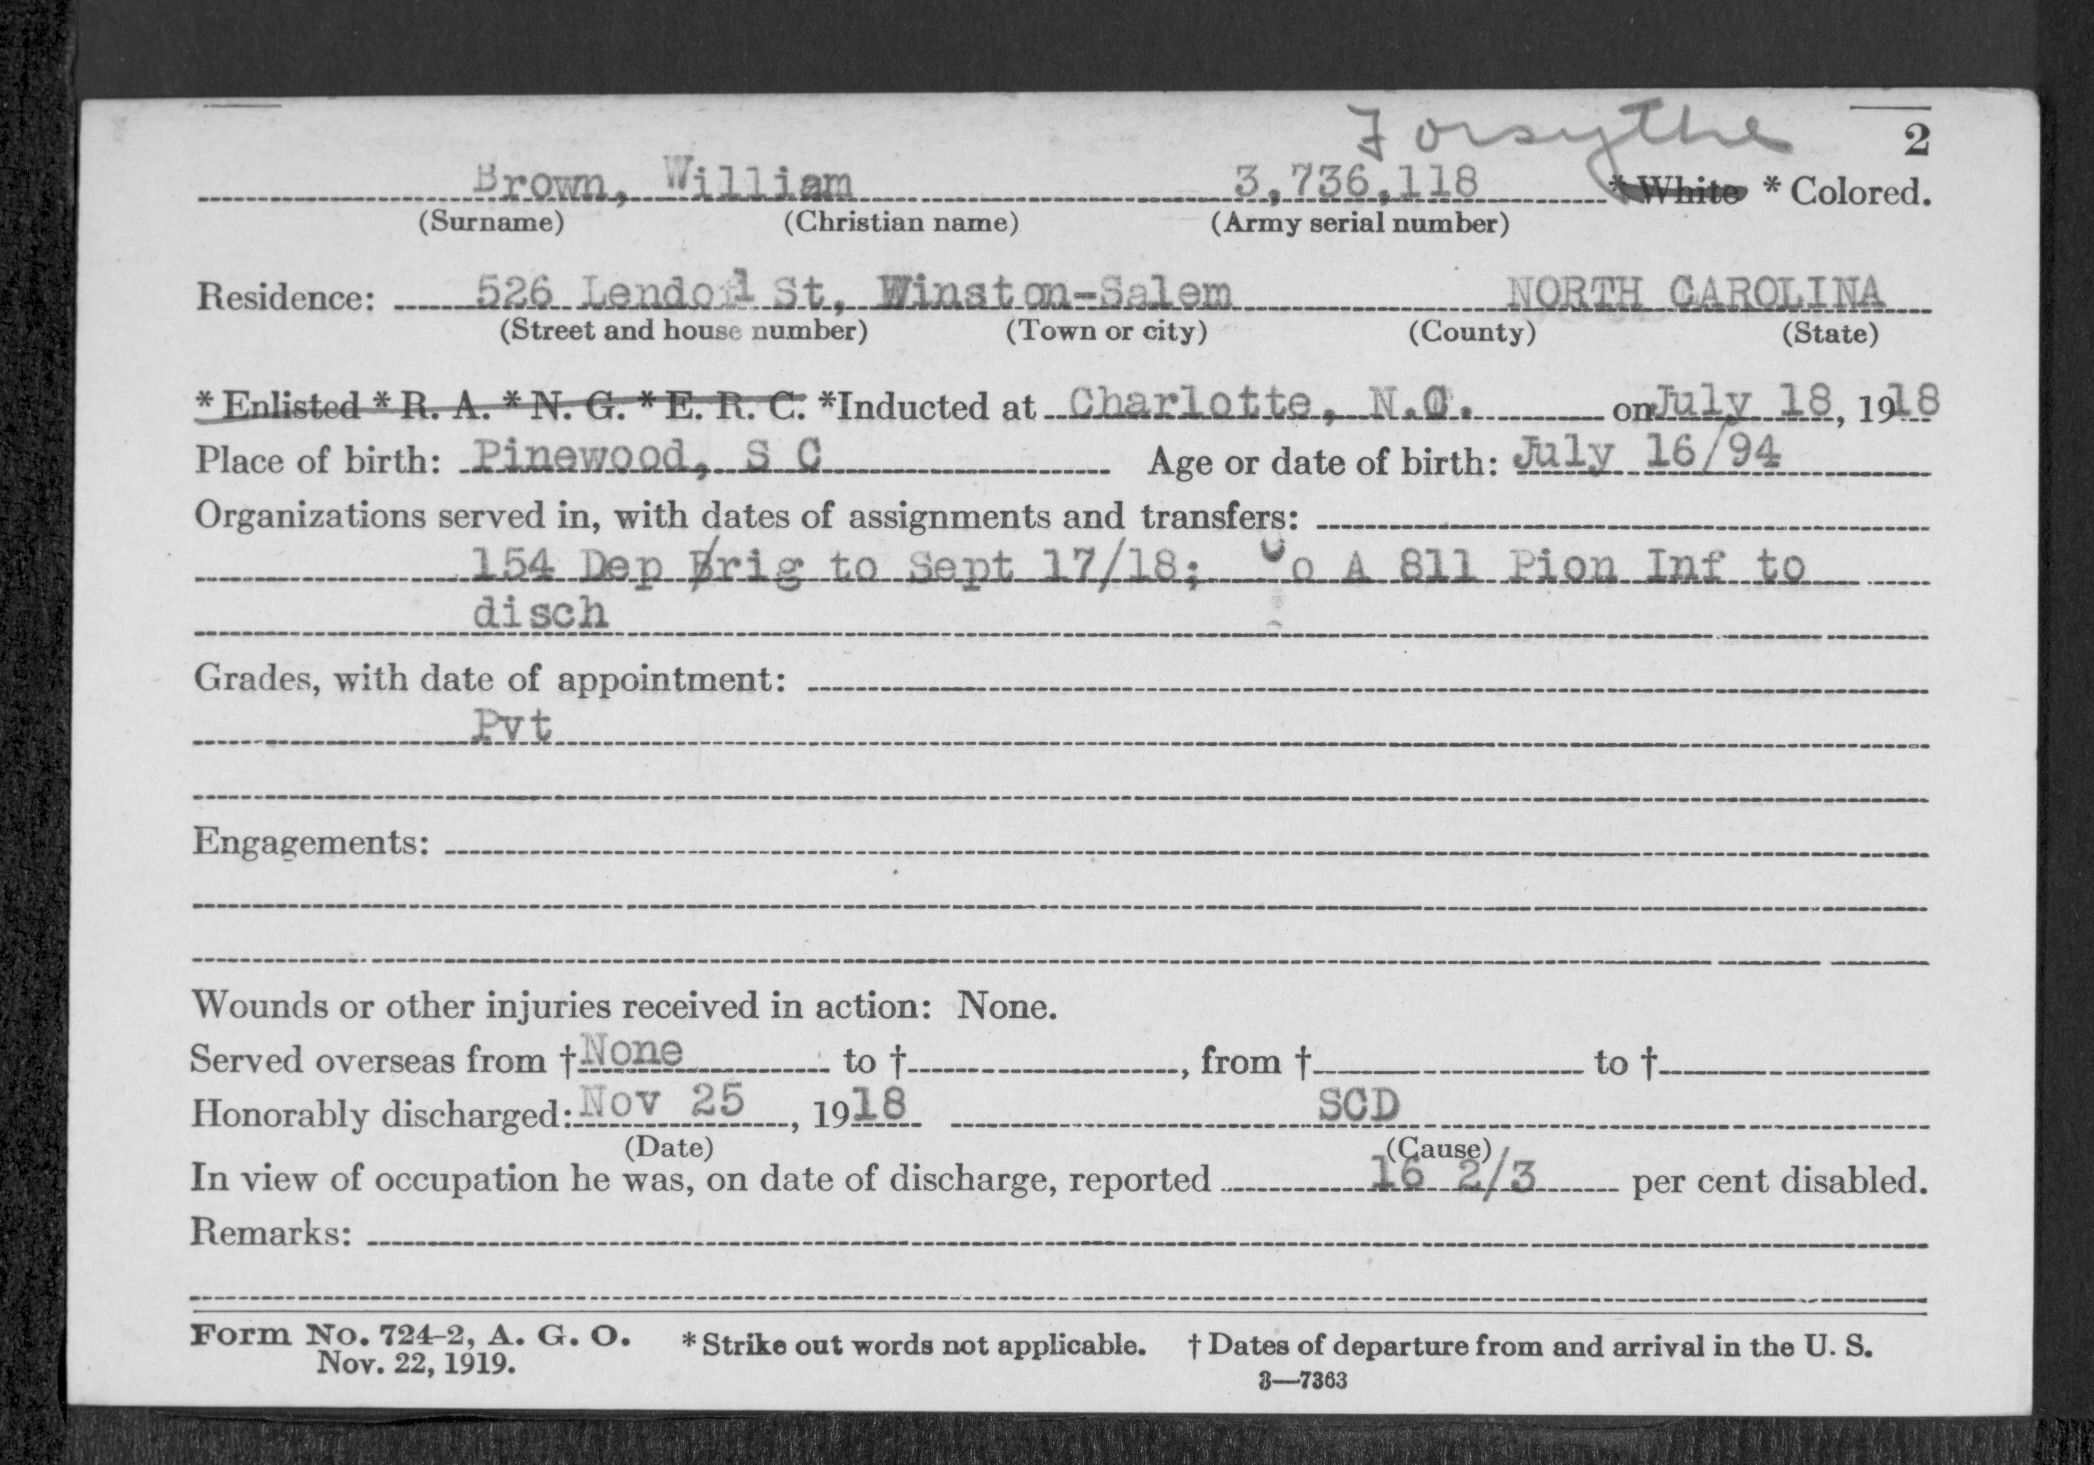 Forsythe 2
Brown, William 3,736,118 * White * Colored.
(Surname) (Christian name) (Army serial number)
Residence: 526 St, Winston-Salem NORTH CAROLINA
(Street and house number) (Town or city) (County) (State)
* Enlisted * R. A. * N. G. * E. R. C. *Inducted at Charlotte, N.C. on July 18, 1918
Place of birth: Pinewood, S C Age or date of birth: July 16/94
Organizations served in, with dates of assignments and transfers:
154 Dep Brig to Sept 17/18; Co A 811 Pion Inf to
disch
Grades, with date of appointment:
Pvt
Engagements:
Wounds or other injuries received in action: None.
Served overseas from † None to †, from † to †
Honorably discharged: Nov 25, 1918 SCD
(Date) (Cause)
In view of occupation he was, on date of discharge, reported 16 2/3 per cent disabled.
Remarks:
Form No. 724-2, A. G. O. * Strike out words not applicable. † Dates of departure from and arrival in the U. S.
Nov. 22, 1919. 3—7363